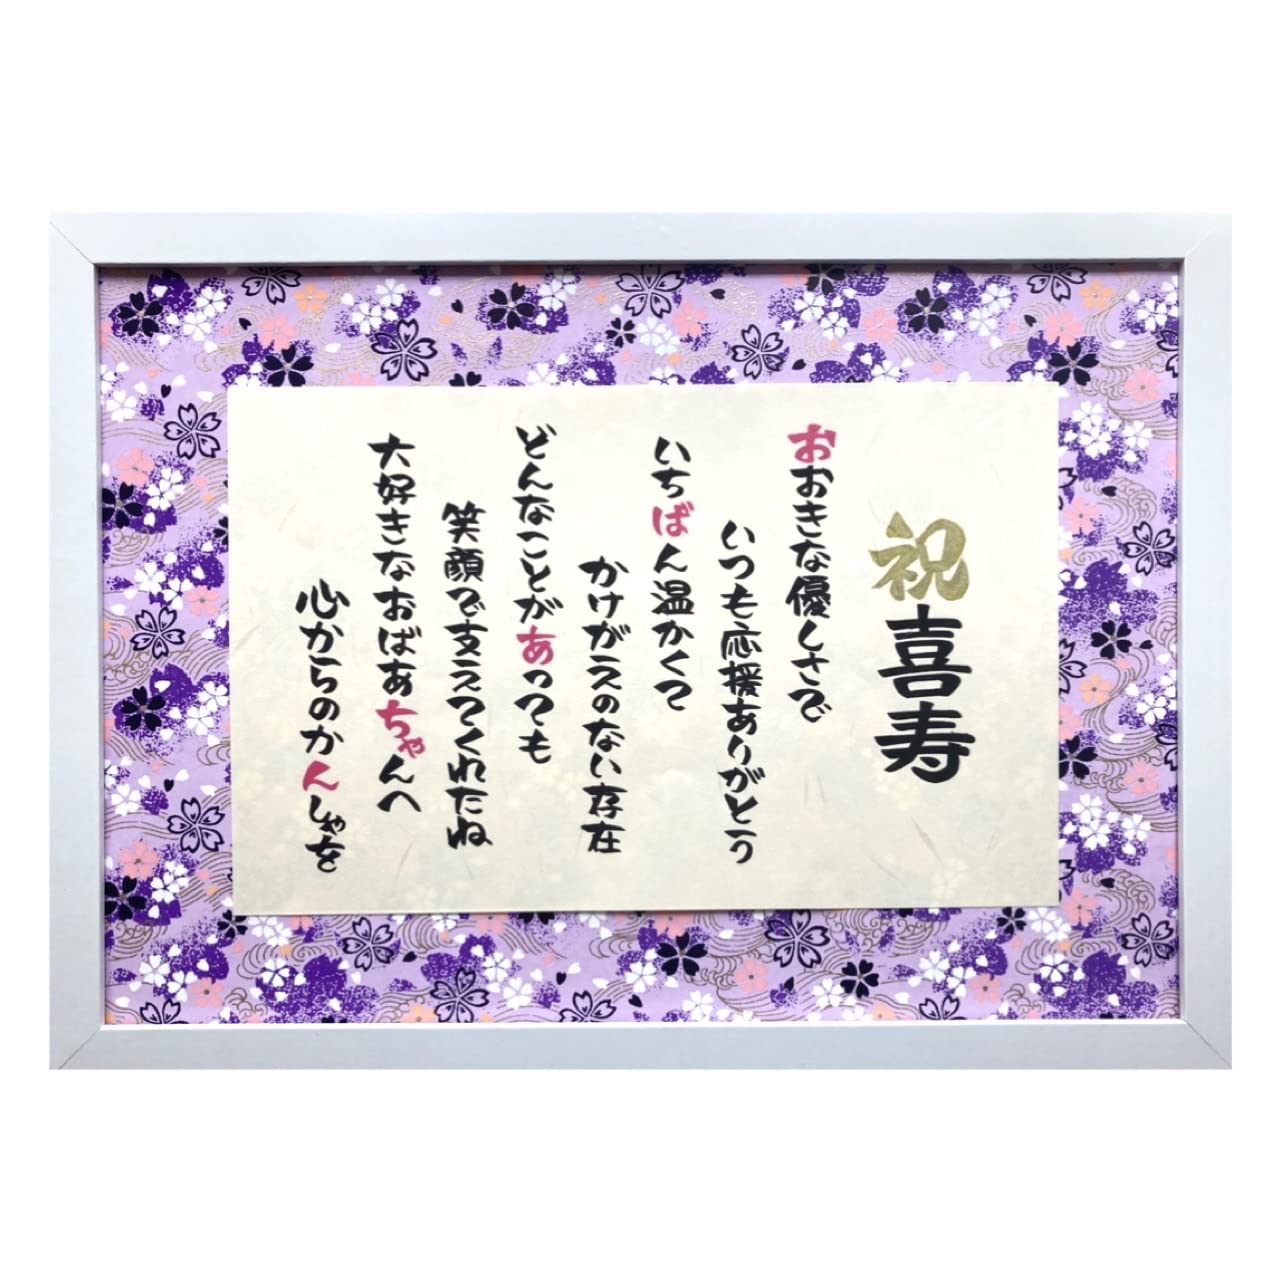 祝喜寿
おおきな優しさで
いつも応援ありがとう
いちばん温かくて
かけがえのない存在
どんなことがあっても
笑顔で支えてくれたね
大好きなおばあちゃんへ
心からのかんしゃを